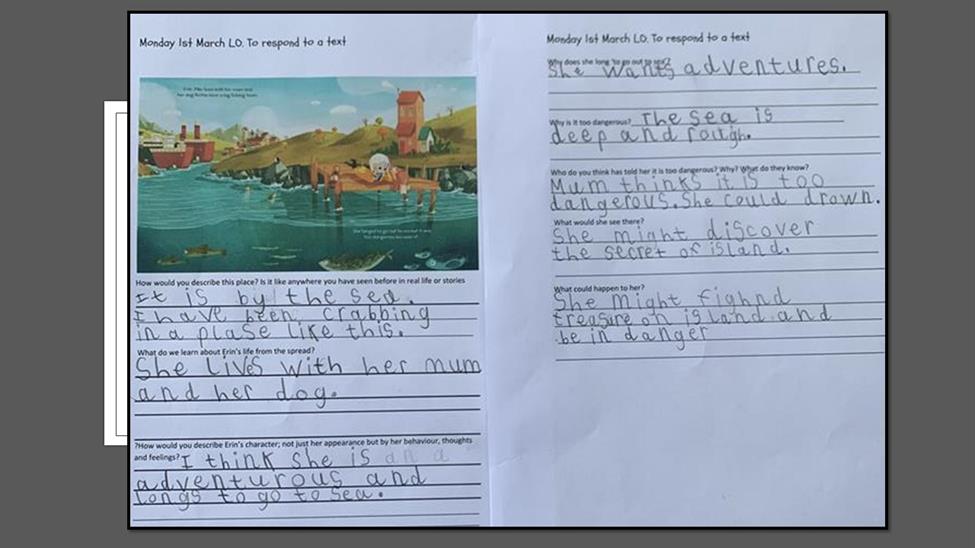 Monday 1st March LO. To respond to a text
Erin Pike lived with her mum and
her dog Archie near a big fishing town.
She longed to go out to sea but it was
How would you describe this place? Is it like anywhere you have seen before in real life or stories
It is by the sea.
I have been crabbing
in a plase like this.
What do we learn about Erin's life from the spread?
She lives with her mum
and her dog.
?How would you describe Erin's character; not just her appearance but by her behaviour, thoughts
and feelings? I think she is an a
adventurous and
longs to go to sea.
Monday 1st March LO. To respond to a text
Why does she long to go out to sea?
She wants adventures.
Why is it too dangerous? The sea is
deep and rough.
Who do you think has told her it is too dangerous? Why? What do they know?
Mum thinks it is too
dangerous. She could drown.
What would she see there?
She might discover
the secret of island.
What could happen to her?
She might fighnd
treasure on island and
be in danger